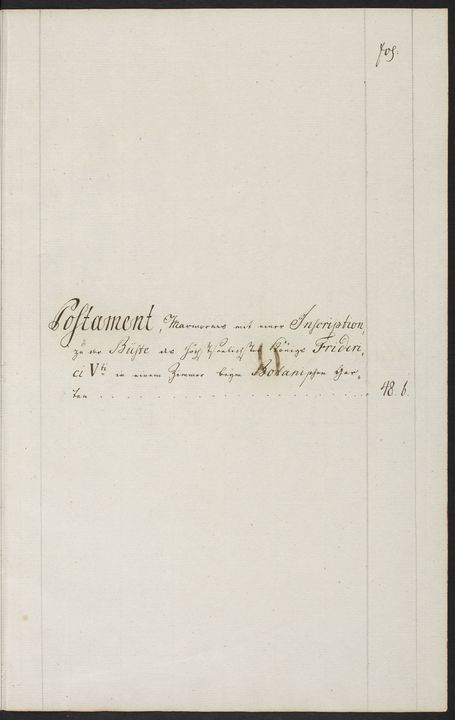 Fol.
Postament, Marmornes mit einer Inscription,
zu der Büste des höchstseelichsten Königs Frideri,
ci Vti in einem Zimmer beym Botanischen Gar,
ten . . . . . . . . . . . . . . . . . . . . 48. b.